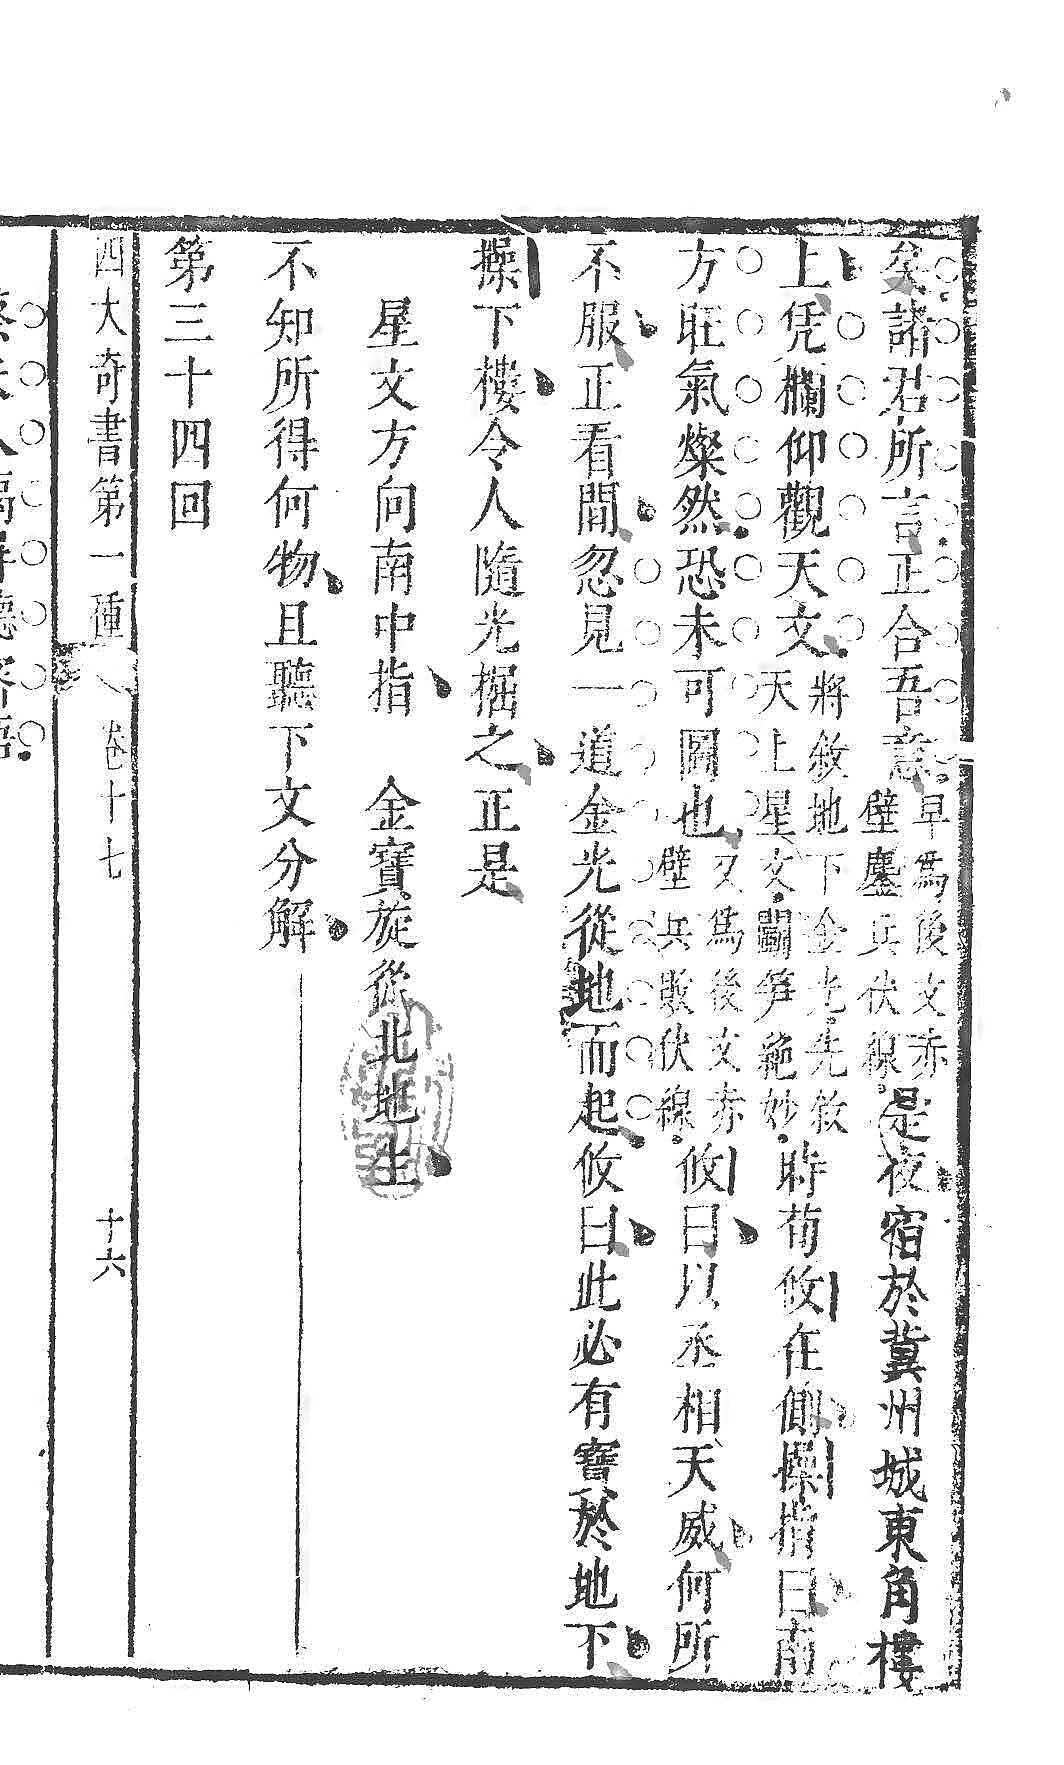 矣諸君所言正合吾意早爲後文赤壁鏖兵伏線是夜宿於冀州城東角樓
上凭欄仰觀天文將敘地下金光先敘天上星文鬭笋絶妙時荀攸在側操指曰南
方旺氣燦然恐未可圖也又爲後文赤壁兵敗伏線攸曰以丞相天威何所
不服正看間忽見一道金光從地而起攸曰此必有寶於地下
操下樓令人隨光掘之正是
星文方向南中指　金寶旋從北地生
不知所得何物且聽下文分解
第三十四回
四大奇書第一種　卷十七　十六